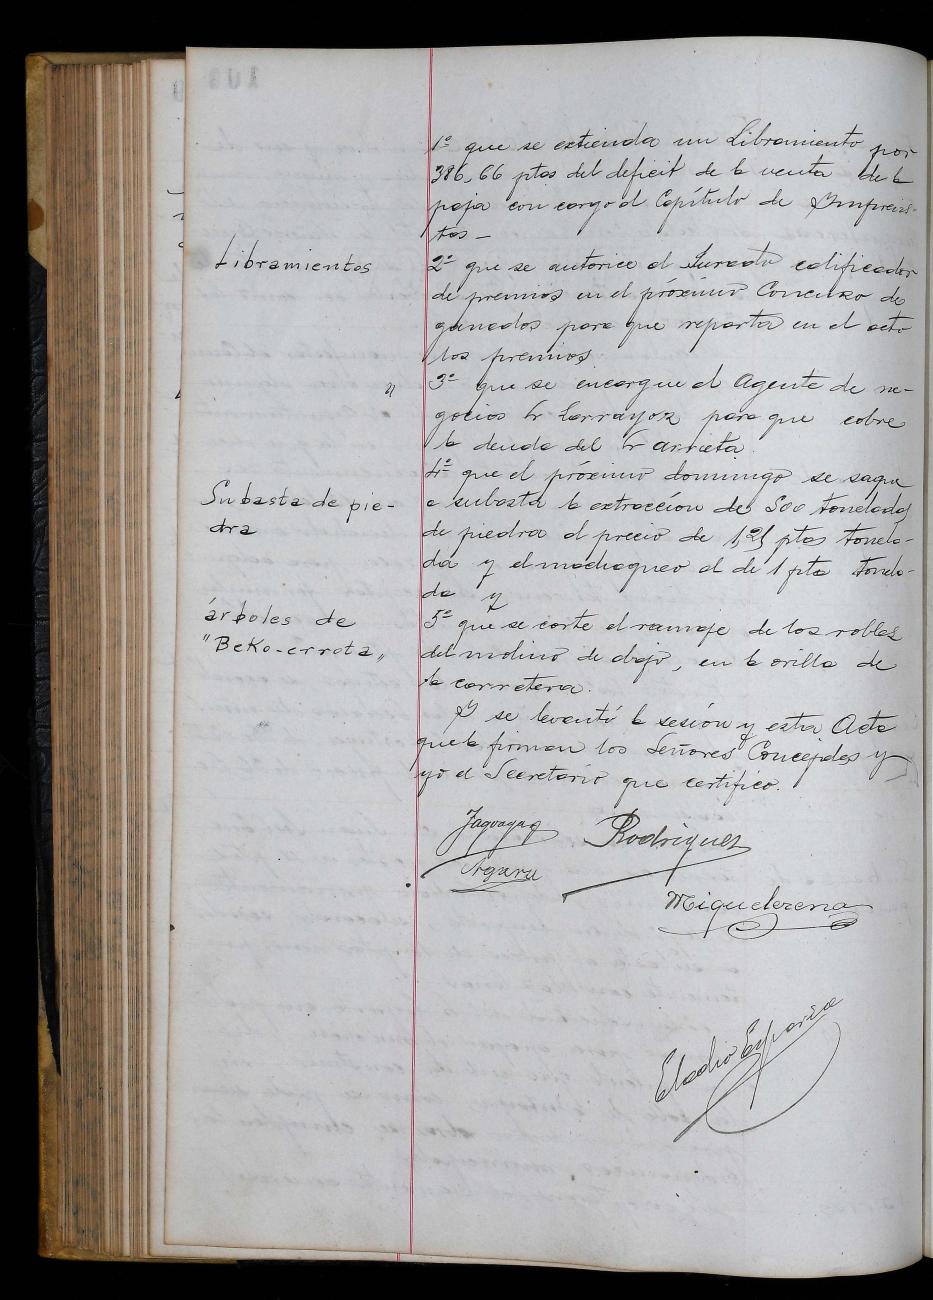 1º que se extienda un Libramiento por
386,66 ptas del deficit de la venta de la
paja con cargo al Capítulo de Imprevis-
tos -
Libramientos
2º que se autorice al Jurado calificador
de premios en el próximo Concurso de
ganados para que reparta en el acto
los premios
"
3º que se encargue al Agente de ne-
gocios Sr Larrayoz para que cobre
la deuda del Sr Arrieta.
4º que el próximo domingo se saque
Subasta de pie-
dra
a subasta la extracción de 500 toneladas
de piedra al precio de 1,25 ptas tonela-
da y el machaqueo al de 1 pta tonela-
da y
árboles de
"Beko-errota"
5º que se corte el ramaje de los robles
del molino de abajo, en la orilla de
la carretera.
Y se levantó la sesión y esta Acta
que la firman los Señores Concejales y
yo el Secretario que certifico.
Rodriguez
Miquelerena
Eladio Esparza